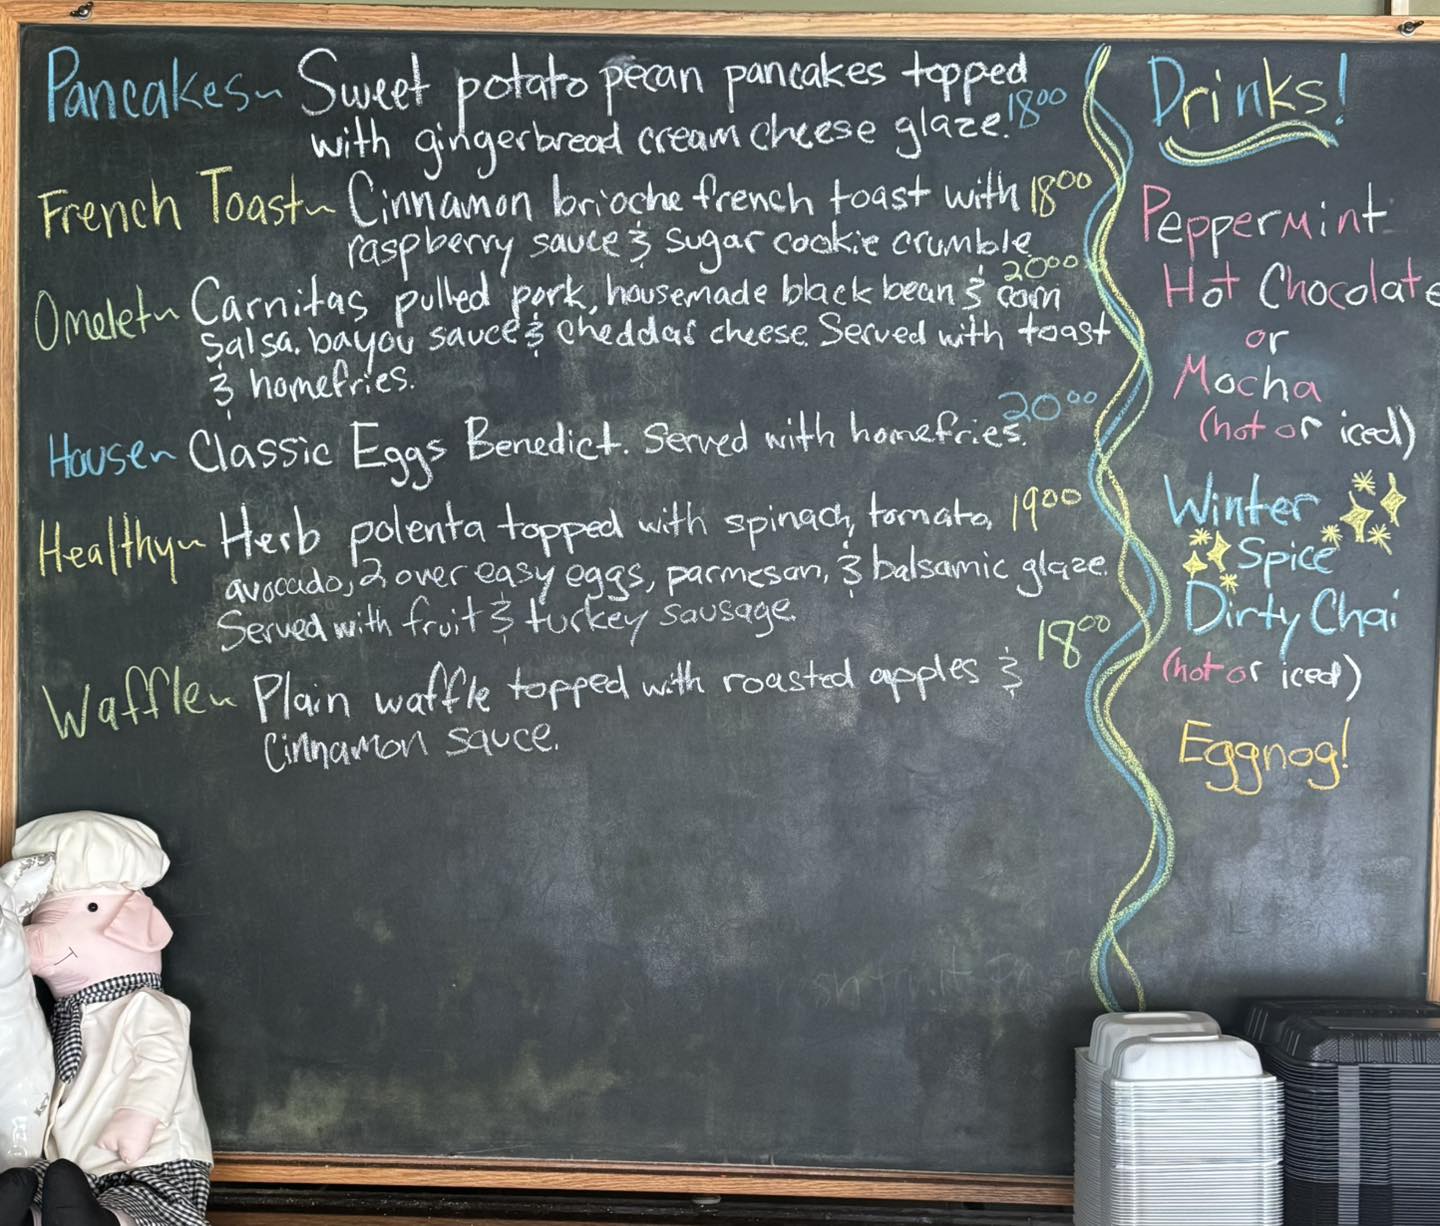 Pancakes~ Sweet potato pecan pancakes topped
with gingerbread cream cheese glaze. 18⁰⁰
French Toast~ Cinnamon brioche french toast with 18⁰⁰
raspberry sauce & sugar cookie crumble.
Omelet~ Carnitas pulled pork, housemade black bean & corn 20⁰⁰
salsa, bayou sauce & cheddar cheese. Served with toast
& homefries.
House~ Classic Eggs Benedict. Served with homefries. 20⁰⁰
Healthy~ Herb polenta topped with spinach, tomato, 19⁰⁰
avocado, 2 over easy eggs, parmesan, & balsamic glaze.
Served with fruit & turkey sausage.
Waffle~ Plain waffle topped with roasted apples & 18⁰⁰
cinnamon sauce.
Drinks!
Peppermint
Hot Chocolate
or
Mocha
(hot or iced)
Winter
Spice
Dirty Chai
(hot or iced)
Eggnog!